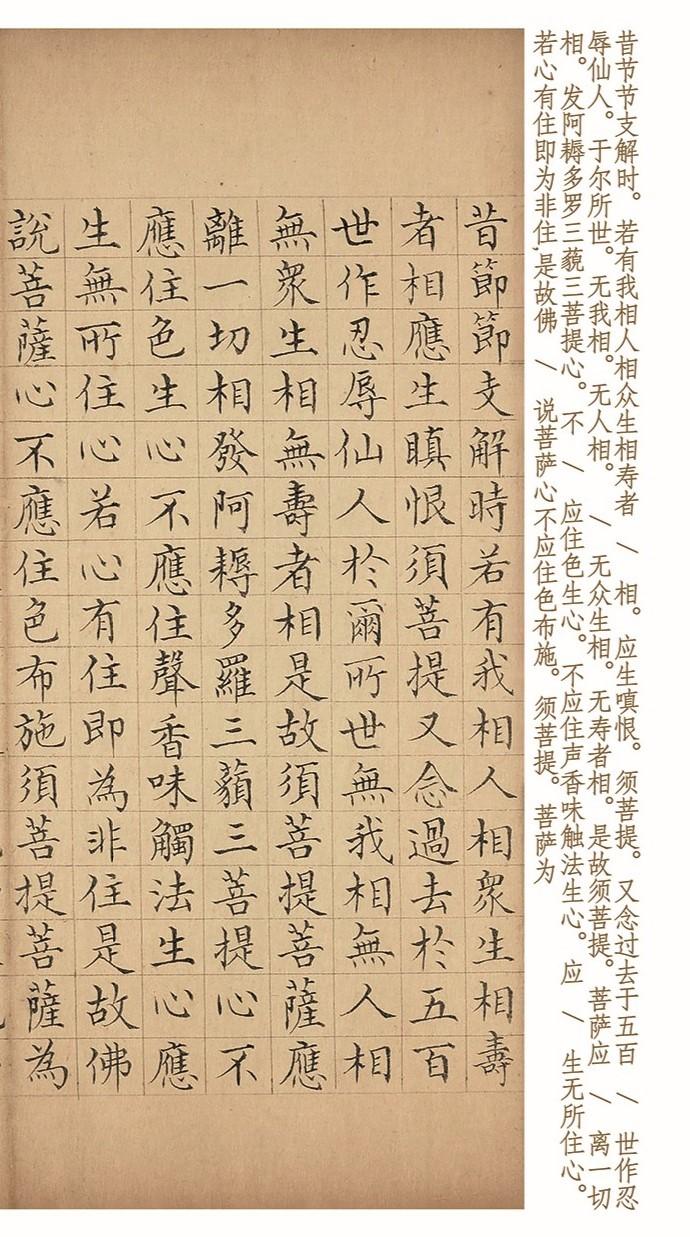 昔节节支解时。若有我相人相众生相寿者 \ 相。应生嗔恨。须菩提。又念过去于五百 \ 世作忍
辱仙人。于尔所世。无我相。无人相。 \ 无众生相。无寿者相。是故须菩提。菩萨应 \ 离一切
相。发阿耨多罗三藐三菩提心。不 \ 应住色生心。不应住声香味触法生心。应 \ 生无所住心。
若心有住即为非住,是故佛 \ 说菩萨心不应住色布施。须菩提。菩萨为
昔節節支解時若有我相人相衆生相壽
者相應生瞋恨須菩提又念過去於五百
世作忍辱仙人於爾所世無我相無人相
無衆生相無壽者相是故須菩提菩薩應
離一切相發阿耨多羅三藐三菩提心不
應住色生心不應住聲香味觸法生心應
生無所住心若心有住即為非住是故佛
說菩薩心不應住色布施須菩提菩薩為